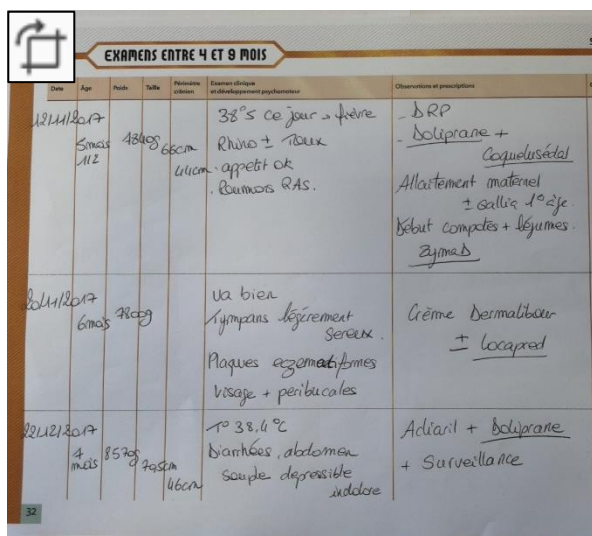 EXAMENS ENTRE 4 ET 9 MOIS
Date Âge Poids Taille Périmètre crânien Examen clinique et développement psychomoteur Observations et prescriptions
12/11/2017
5 mois 1/2
7840g
66cm
44cm
38°5 ce jour → fièvre
Rhino ± Toux
. appetit ok
. Poumons RAS.
- DRP
- Doliprane +
Coquelusédal
Allaitement maternel
± Gallia 1° âge.
Début compotes + légumes.
ZymaD
20/11/2017
6 mois
7800g
va bien
Tympans légèrement
sereux.
Plaques eczematiformes
visage + peribucales
Crème Dermalibour
± Locapred
22/12/2017
7 mois
8570g
70,5cm
46cm
T° 38,4°C
Diarrhées, abdomen
souple depressible
indolore
Adiaril + Doliprane
+ Surveillance
32